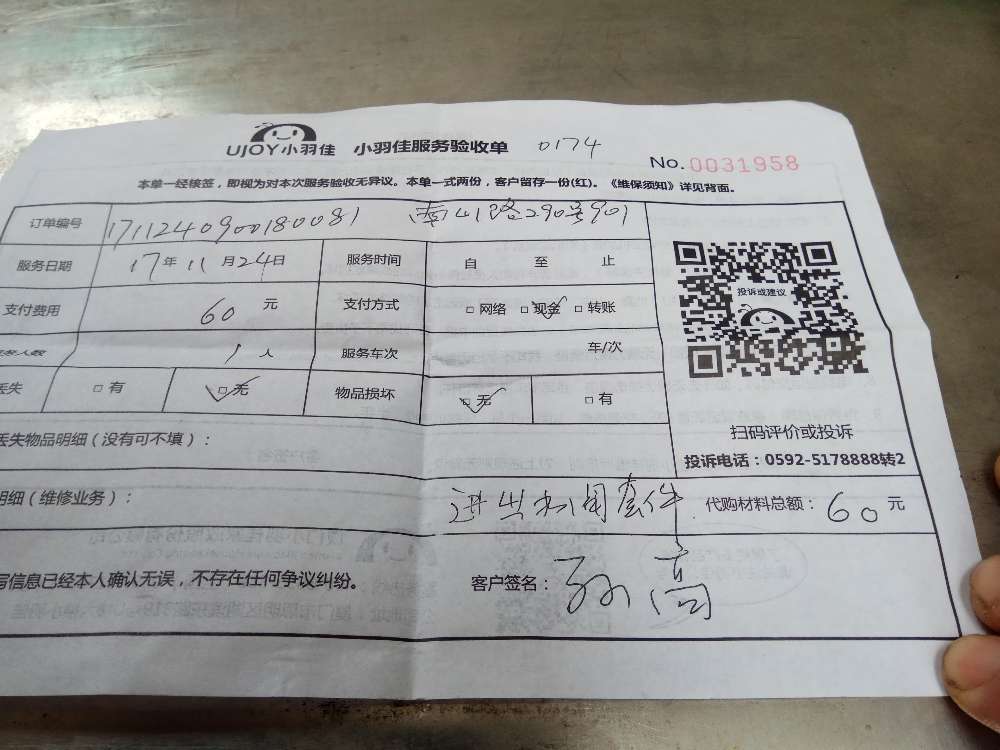 UJOY小羽佳 小羽佳服务验收单 0174
No.0031958
本单一经核签，即视为对本次服务验收无异议。本单一式两份，客户留存一份(红)。《维保须知》详见背面。
订单编号 1711240900180081 南山路290号901
服务日期 17年11月24日 服务时间 自 至 止
支付费用 60元 支付方式 □网络 □现金 □转账
人数 1人 服务车次 车/次
丢失 □有 □无 物品损坏 □无 □有
投诉或建议
扫码评价或投诉
投诉电话：0592-5178888转2
丢失物品明细（没有可不填）：
明细（维修业务）： 进出水阀套件 代购材料总额：60元
写信息已经本人确认无误，不存在任何争议纠纷。 客户签名：孙高